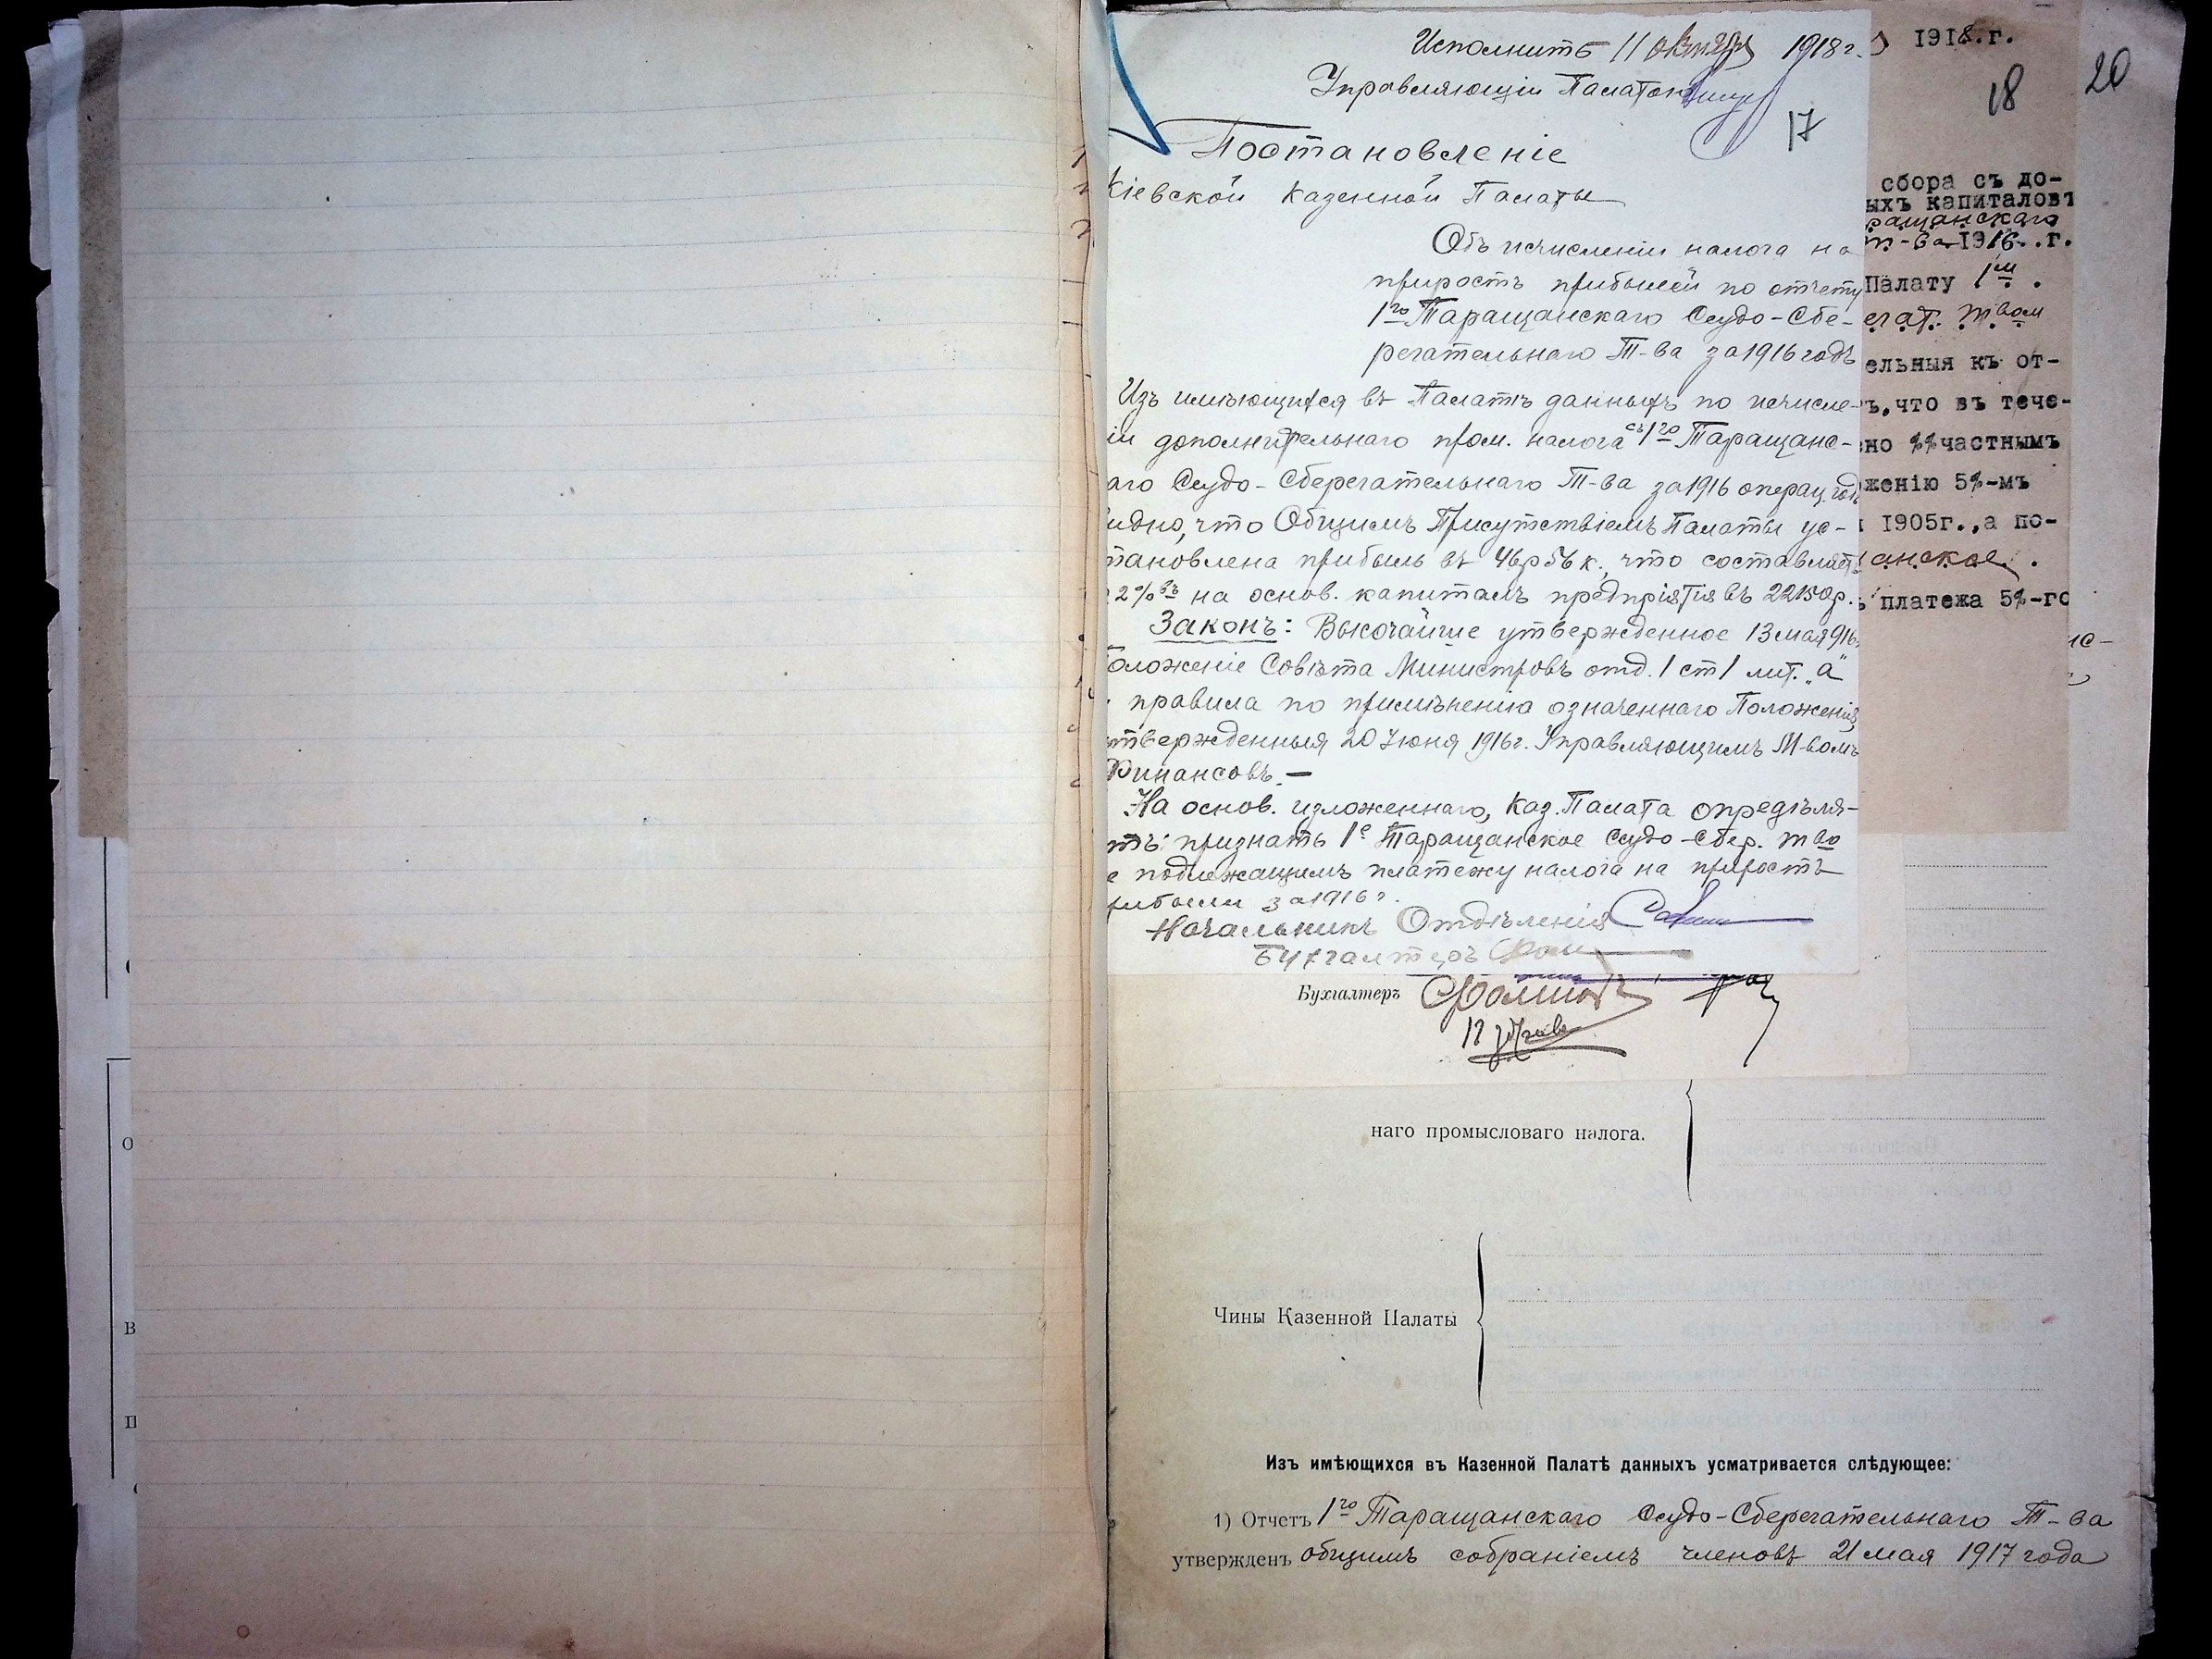 Исполнить 11 октября 1918 г.
Управляющiй Палатой
17
Постановленiе
Кiевской Казенной Палаты
Объ исчисленiи налога на
приростъ прибылей по отчету
1го Таращанскаго Ссудо-Сбе-
регательнаго Т-ва за 1916 годъ
Изъ имѣющихся въ Палатѣ данныхъ по исчисле-
iи дополнительнаго пром. налога съ 1го Таращанс-
аго Ссудо-Сберегательнаго Т-ва за 1916 операц. годъ
идно, что Общимъ Присутствiемъ Палаты ус-
тановлена прибыль въ 46р 56 к., что составляетъ
2% въ на основ. капиталъ предпрiятiя въ 22150р.
Законъ: Высочайше утвержденное 13 мая 916г.
оложенiе Совѣта Министровъ отд. 1 ст 1 лит. „а"
правила по примѣненiю означеннаго Положенiя,
твержденныя 20 Iюня 1916г. Управляющимъ М-вомъ
Финансовъ. —
На основ. изложеннаго, Каз. Палата опредѣля-
тъ: признать 1е Таращанское Ссудо-Сбер. тво
е подлежащимъ платежу налога на приростъ
рибыли за 1916 г.
Начальникъ Отдѣленiя
Бухгалтеръ
1918.г.
18
20
сбора съ до-
ыхъ капиталовъ
ращанскаго
т-ва 1916..г.
Палату 1м.
егат. твом
ельныя къ от-
ъ,что въ тече-
но %%частнымъ
женiю 5%-мъ
1905г.,а по-
анское.
платежа 5%-го
Бухгалтеръ
наго промысловаго налога.
Чины Казенной Палаты
Изъ имѣющихся въ Казенной Палатѣ данныхъ усматривается слѣдующее:
1) Отчетъ 1го Таращанскаго Ссудо-Сберегательнаго Т-ва
утвержденъ общимъ собранiемъ членовъ 21 мая 1917 года